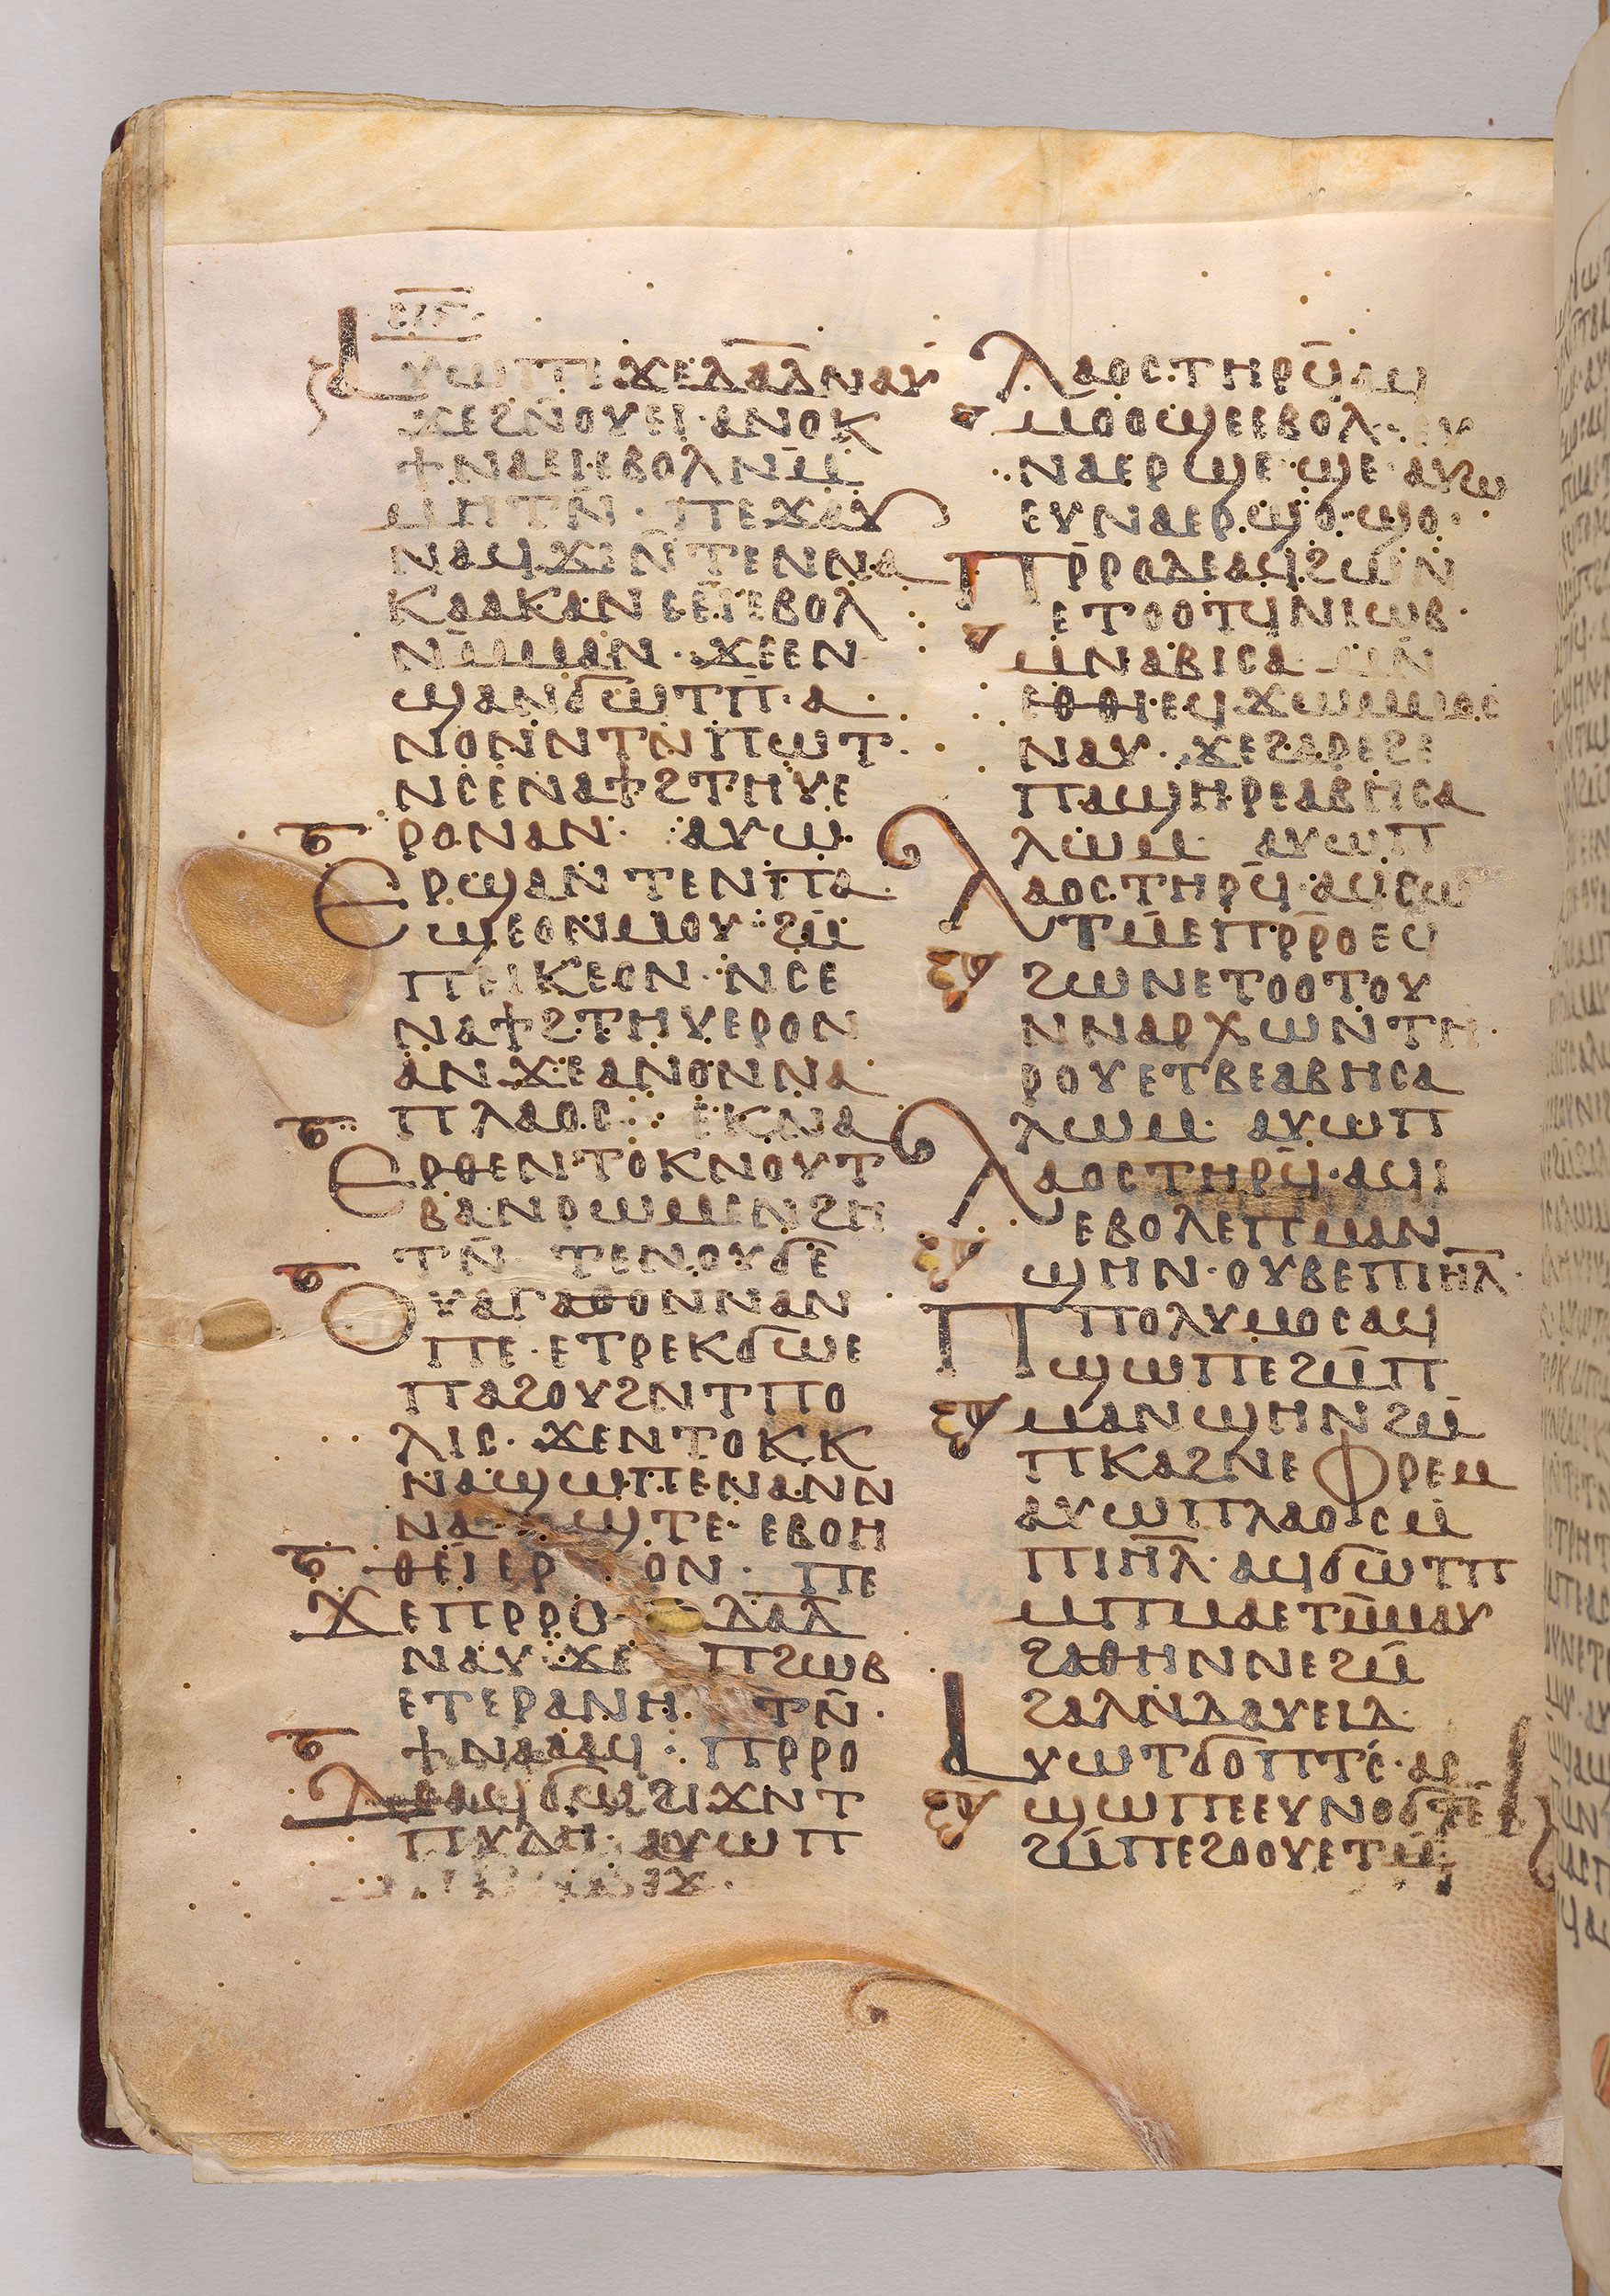 ⲁⲩⲱⲡⲉϫⲉⲇⲁⲇⲛⲁⲩ
ϫⲉϩⲛⲟⲩⲉⲓ·ⲁⲛⲟⲕ
ϯⲛⲁⲉⲓⲉⲃⲟⲗⲛⲙ̄
ⲙⲏⲧⲛ̄·ⲡⲉϫⲁⲩ
ⲛⲁϥϫⲓⲛ̄ⲧⲉⲛⲛⲁ
ⲕⲁⲁⲕⲁⲛⲉⲉⲓⲉⲃⲟⲗ
ⲛⲙ̄ⲙⲁⲛ·ϫⲉⲉⲛ
ϣⲁⲛϭⲱⲧⲡ̄·ⲁ
ⲛⲟⲛⲛⲧⲛⲡⲱⲧ
ⲛⲥⲉⲛⲁϯϩⲧⲏⲩⲉ
ⲣⲟⲛⲁⲛ· ⲁⲩⲱ
ⲉⲣϣⲁⲛⲧⲉⲛⲡⲁ
ϣⲉⲟⲛⲙⲟⲩ·ϩⲙ̄
ⲡⲉⲓⲕⲉⲟⲛ·ⲛⲥⲉ
ⲛⲁϯϩⲧⲏⲩⲉⲣⲟⲛ
ⲁⲛϫⲉⲁⲛⲟⲛⲛⲁ
ⲡⲗⲁⲟⲥ ⲉⲕⲛⲁ
ⲉⲣⲑⲉⲛⲧⲟⲕⲛⲟⲩⲧ
ⲃⲁⲛⲣⲱⲙⲉⲛϩⲏ
ⲧⲛ̄ ⲧⲉⲛⲟⲩϭⲉ
ⲟⲩⲁⲅⲁⲑⲟⲛⲛⲁⲛ
ⲡⲉ·ⲉⲧⲣⲉⲕϭⲱⲉ
ⲡⲁϩⲟⲩϩⲛⲧⲡⲟ
ⲗⲓⲥ·ϫⲉⲛⲧⲟⲕⲕ
ⲛⲁϣⲱⲡⲉⲛⲁⲛⲛ
ⲛⲁ ϣⲧⲉ·ⲉⲃⲟⲏ
ⲑⲉⲓⲉⲣⲟⲛ· ⲡⲉ
ϫⲉⲡⲣⲣⲟ ⲇⲁⲇ
ⲛⲁⲩ·ϫⲉ ⲡϩⲱⲃ
ⲉⲧⲉⲣⲁⲛⲏ ⲧⲛ̄·
ϯⲛⲁⲁⲁϥ· ⲡⲣⲣⲟ
ⲇⲉⲁϥϭⲱ ϩⲓϫⲛⲧ
ⲡⲩⲗⲏ·ⲁⲩⲱⲡ
ⲗⲁⲟⲥⲧⲏⲣϥ̄ⲁϥ
ⲙⲟⲟϣⲉⲉⲃⲟⲗ·ⲉⲩ
ⲛⲁⲉⲣϣⲉ·ϣⲉ·ⲁⲩⲱ
ⲉⲩⲛⲁⲉⲣϣⲟ·ϣⲟ·
ⲡⲣⲣⲟⲇⲉⲁϥϩⲱⲛ
ⲉⲧⲟⲟⲧϥⲛⲓⲱⲃ·
ⲙⲛⲁⲃⲓⲥⲁ ⲙⲛ̄
ⲉⲑⲑⲓ·ⲉϥϫⲱⲙⲙⲟⲥ
ⲛⲁⲩ·ϫⲉϩⲁⲣⲉϩⲉ
ⲡⲁϣⲏⲣⲉⲁⲃⲏⲥⲁ
ⲗⲱⲙ· ⲁⲩⲱⲡ
ⲗⲁⲟⲥⲧⲏⲣϥ̄·ⲁϥⲥⲱ
ⲧⲙ̄ⲉⲡⲣⲣⲟⲉϥ
ϩⲱⲛⲉⲧⲟⲟⲧⲟⲩ
ⲛⲛⲁⲣⲭⲱⲛⲧⲏ
ⲣⲟⲩⲉⲧⲃⲉⲁⲃⲏⲥⲁ
ⲗⲱⲙ· ⲁⲩⲱⲡ
ⲗⲁⲟⲥⲧⲏⲣϥ̄·ⲁϥⲓ
ⲉⲃⲟⲗⲉⲡⲙⲁⲛ
ϣⲏⲛ·ⲟⲩⲃⲉⲡⲓⲏ̄ⲗ̄·
ⲡⲡⲟⲗⲩⲙⲟⲥⲁϥ
ϣⲱⲡⲉϩⲙ̄ⲡ
ⲙⲁⲛϣⲏⲛϩⲙ̄
ⲡⲕⲁϩⲛⲉⲫⲣⲉⲙ
ⲁⲩⲱⲡⲗⲁⲟⲥⲙ̄
ⲡⲓⲏ̄ⲗ̄·ⲁϥϭⲱⲧⲡ
ⲙⲡⲙⲁⲉⲧⲙ̄ⲙⲁⲩ
ϩⲁⲑⲏⲛⲛⲉϩⲙ̄
ϩⲁⲗⲛⲇⲁⲩⲉⲓⲇ·
ⲁⲩⲱⲧϭⲟⲡⲧⲥ̄·ⲁⲥ
ϣⲱⲡⲉⲉⲩⲛⲟϭⲧⲉ
ϩⲙ̄ⲡⲉϩⲟⲟⲩⲉⲧⲙ̄